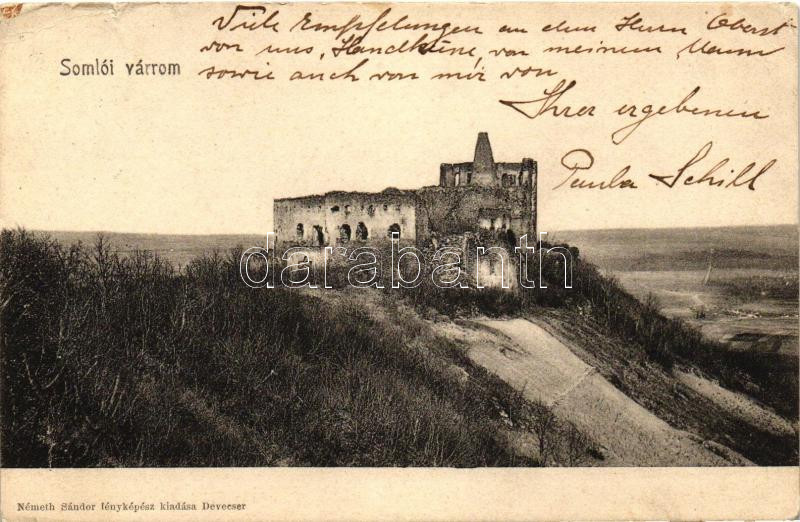 Viele Empfelungen an den Herrn Oberst
von uns, Handküsse, von meinem Mann
sowie auch von mir von
Ihrer ergebenen
Paula Schill
Somlói várrom
darabanth
Németh Sándor fényképész kiadása Devecser